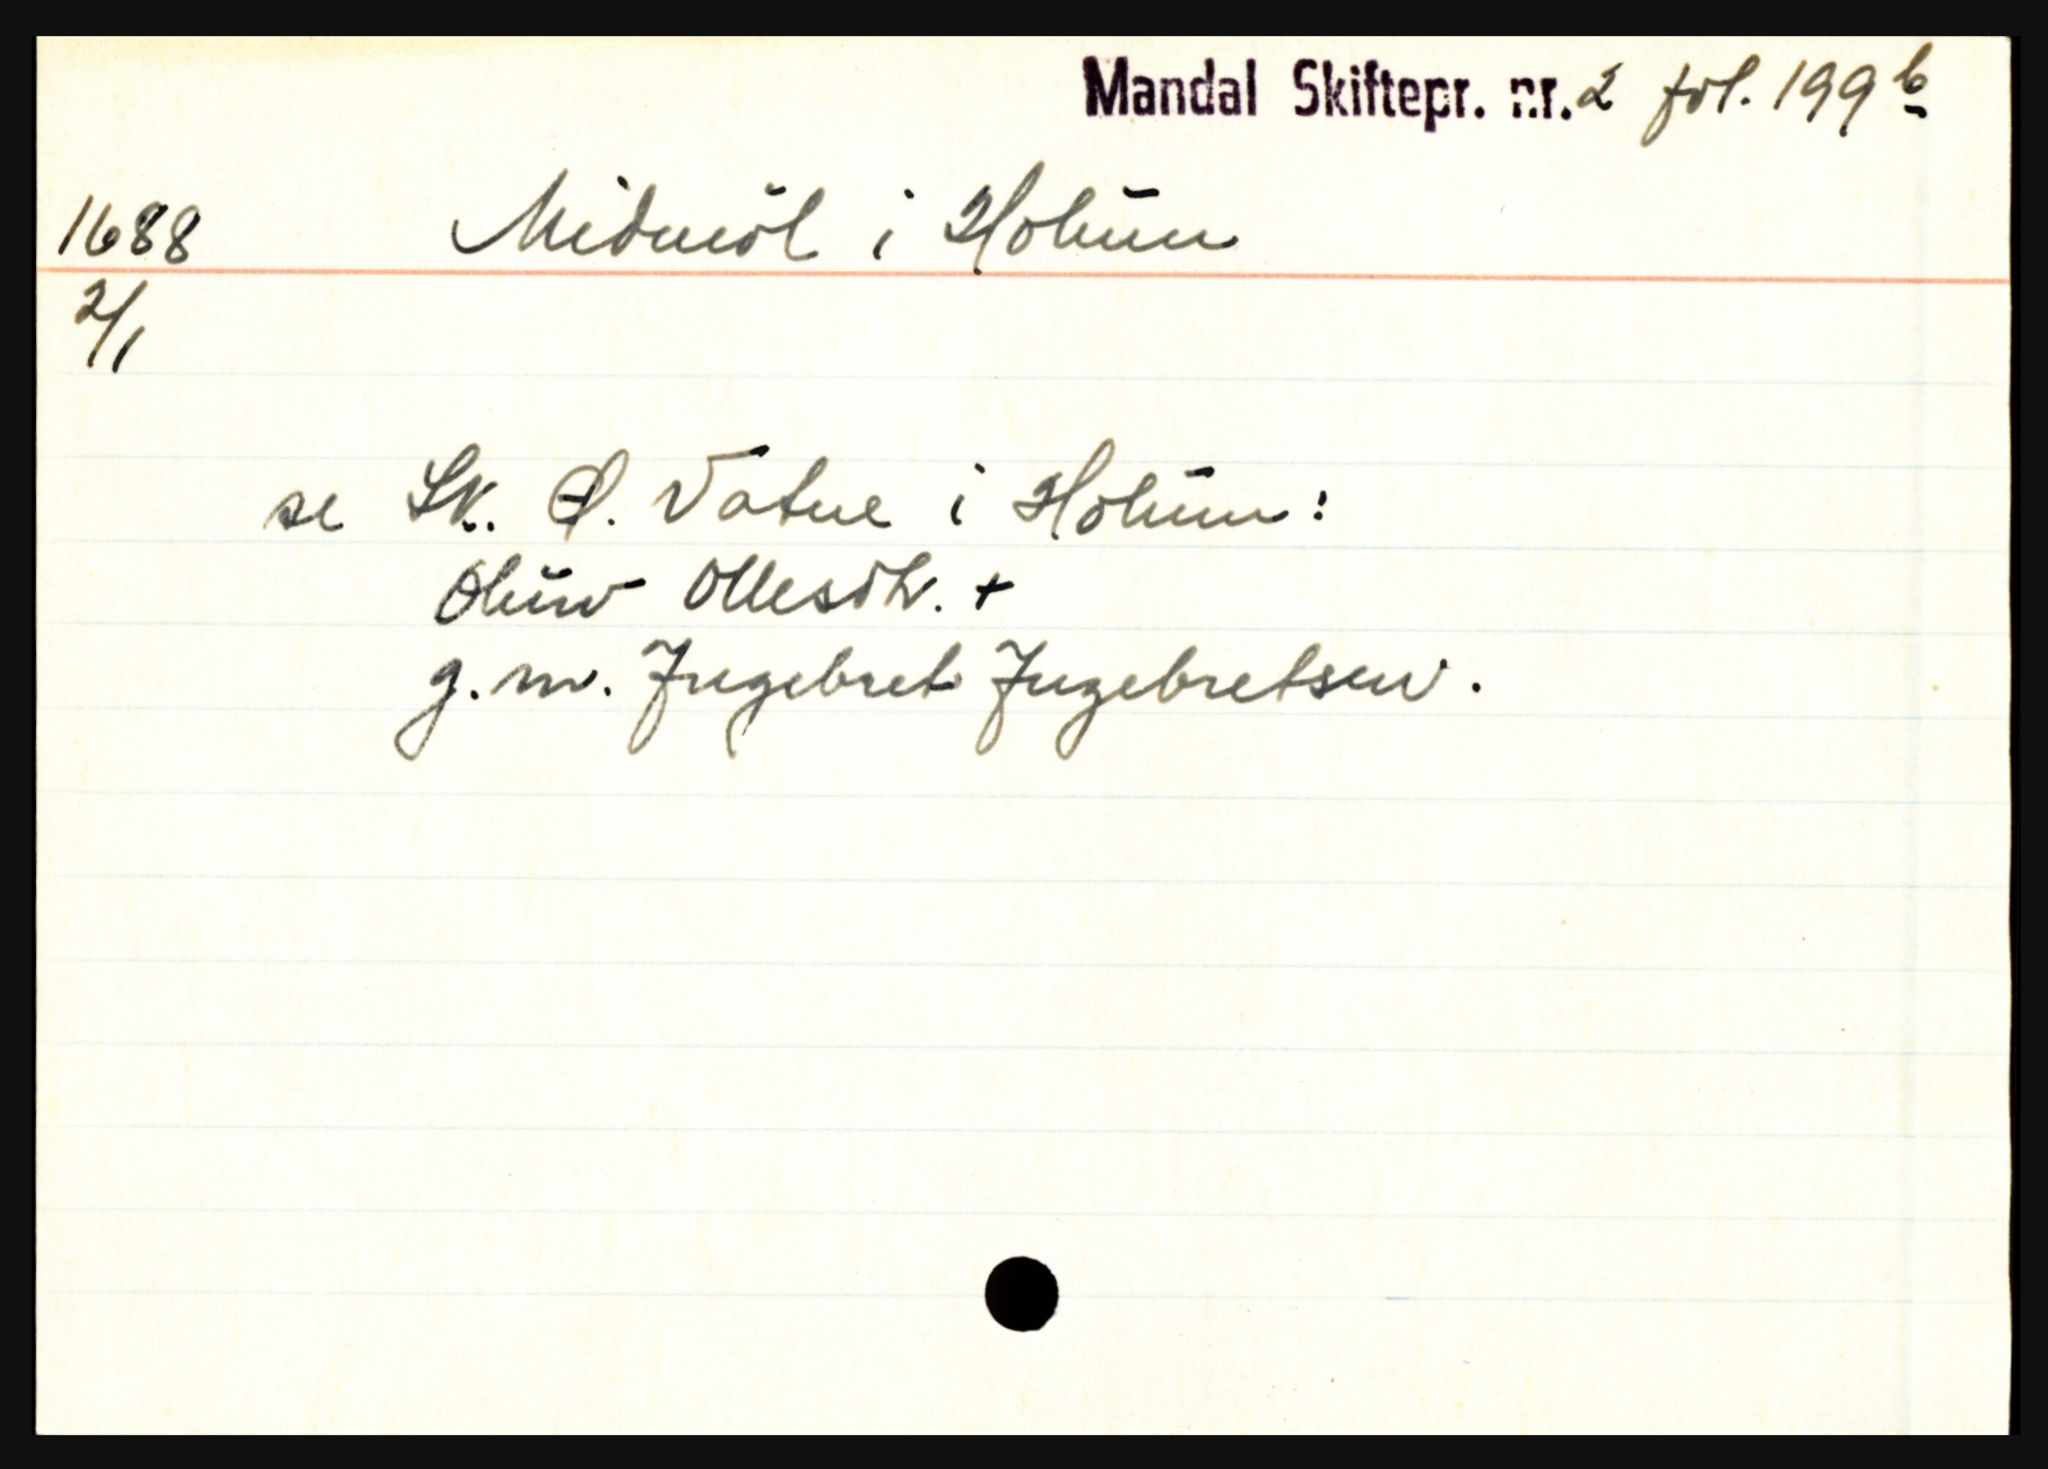 Mandal Skiftepr. nr. 2 fol. 199 b
1688 Midmöl i Holum
2/1
se Sk. Ø. Vatne i Holum:
Oluv Ollesdtr. +
g.m. Ingebret Ingebretsen.